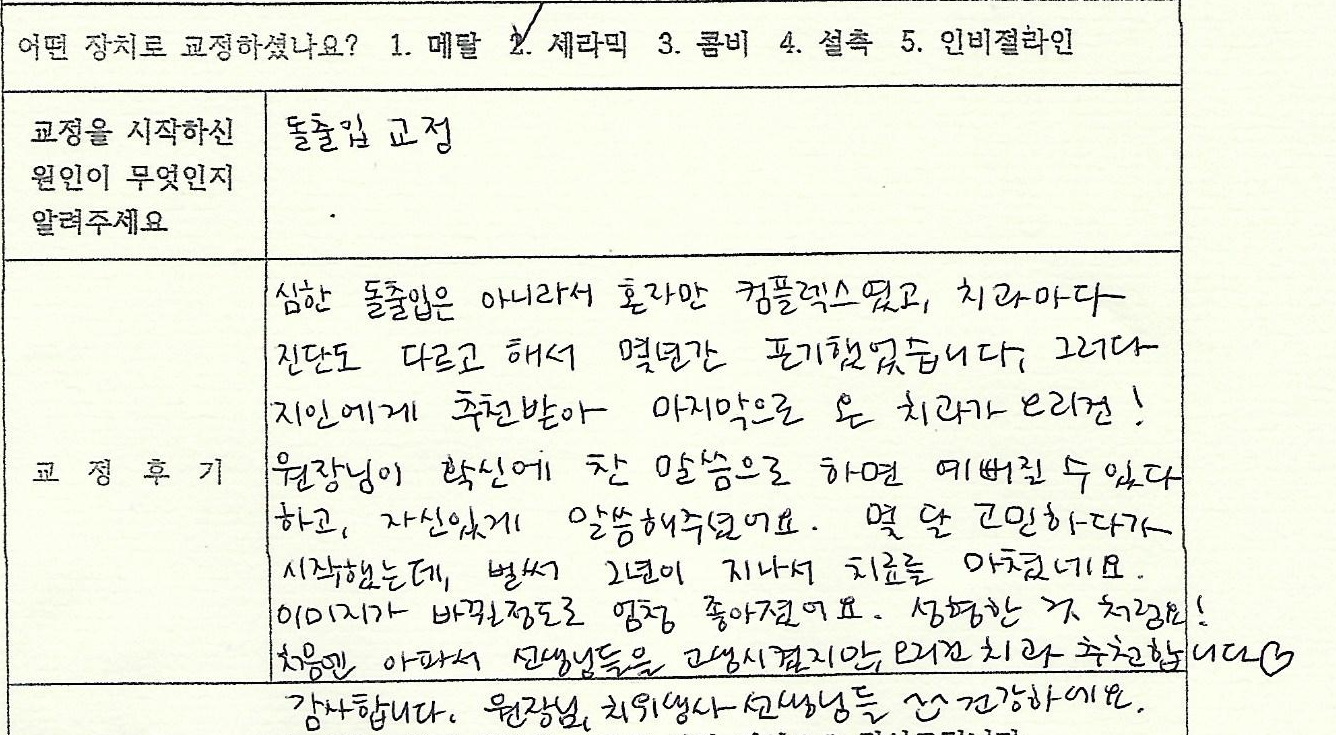 어떤 장치로 교정하셨나요? 1. 메탈 2. 세라믹 3. 콤비 4. 설측 5. 인비절라인
교정을 시작하신
원인이 무엇인지
알려주세요
돌출입 교정
교 정 후 기
심한 돌출입은 아니라서 혼자만 컴플렉스였고, 치과마다
진단도 다르고 해서 몇년간 포기했었습니다, 그러다
지인에게 추천받아 마지막으로 온 치과가 오리건!
원장님이 확신에 찬 말씀으로 하면 예뻐질 수 있다
하고, 자신있게 말씀해주셨어요. 몇 달 고민하다가
시작했는데, 벌써 2년이 지나서 치료를 마쳤네요.
이미지가 바뀔정도로 엄청 좋아졌어요. 성형한 것 처럼요!
처음엔 아파서 선생님들을 고생시켰지만, 오리건 치과 추천합니다♡
감사합니다. 원장님, 치위생사 선생님들 ^^ 건강하세요.